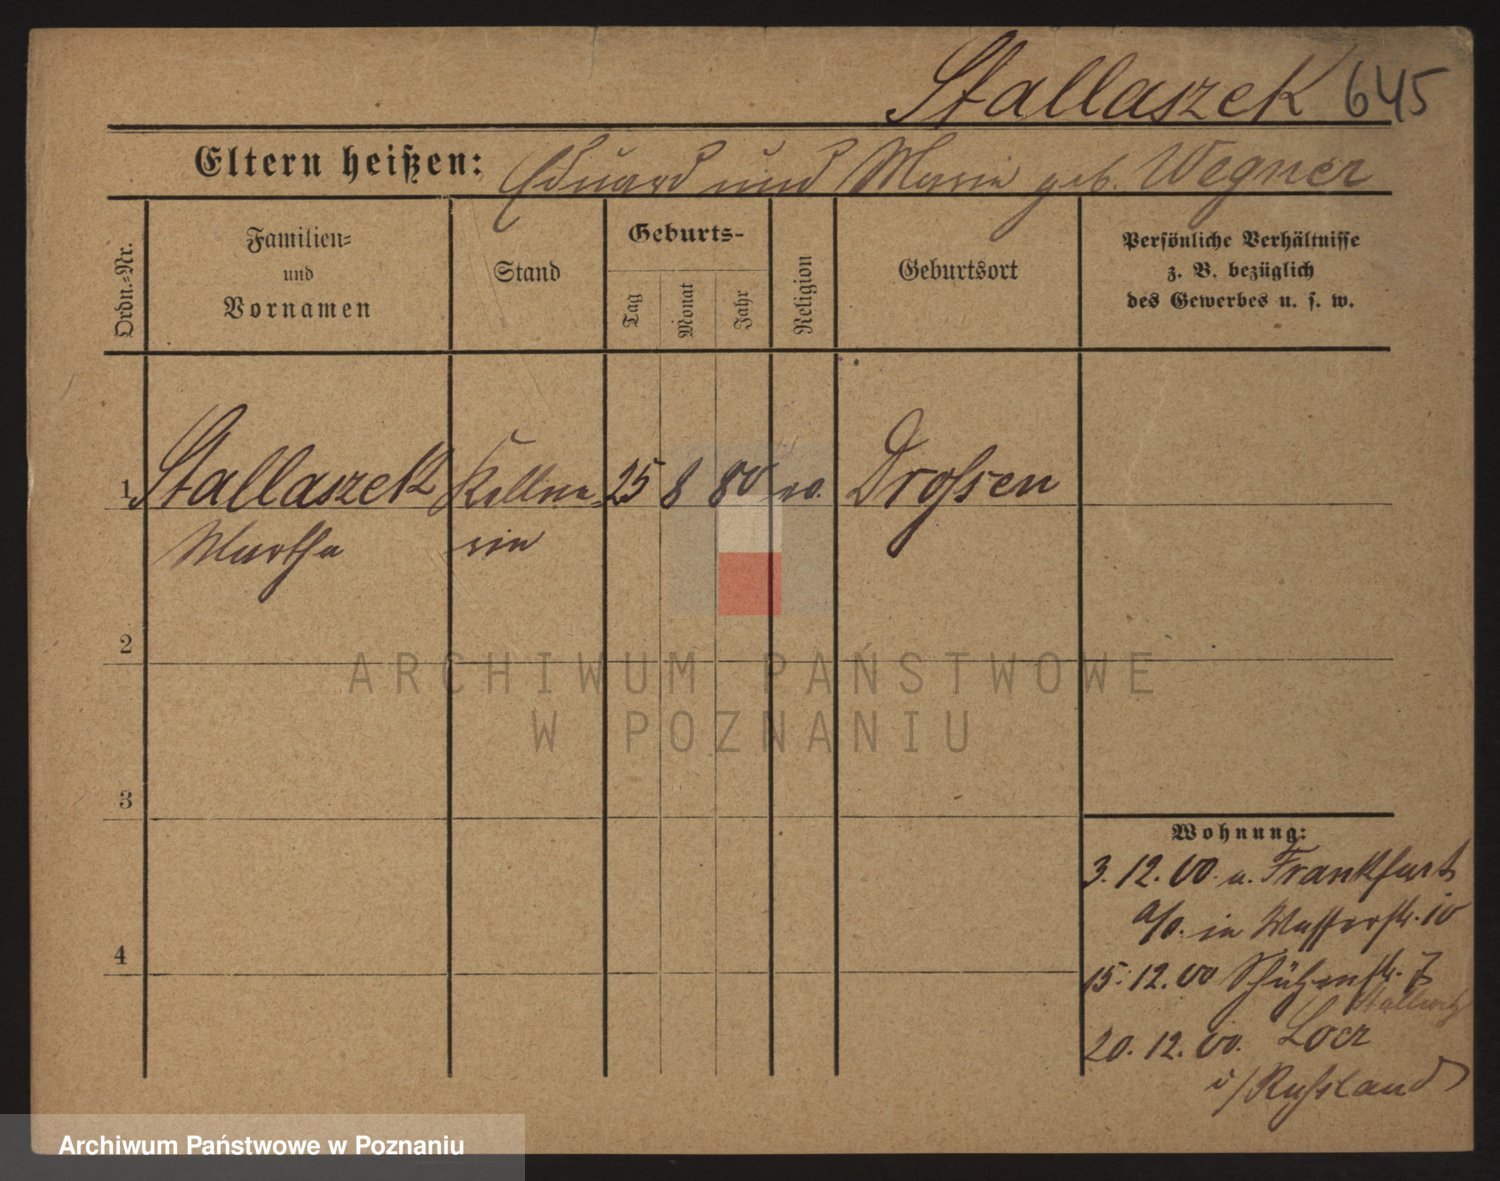 Stallaszek 645
Eltern heißen: Eduard und Marie geb. Wegner
Ordn.=Nr.
Familien=
und
Vornamen
Stand
Geburts-
Tag
Monat
Jahr
Religion
Geburtsort
Persönliche Verhältnisse
z. B. bezüglich
des Gewerbes u. s. w.
1 Stallaszek Kellne- 25 8 80 ev. Drossen
Martha rin
2
3
4
Wohnung:
3. 12. 00. a. Frankfurt
a/O. in Wasserstr. 10
15. 12. 00 Schützenstr. 7
20. 12. 00.
i/Russland
ARCHIWUM PAŃSTWOWE
W POZNANIU
Archiwum Państwowe w Poznaniu